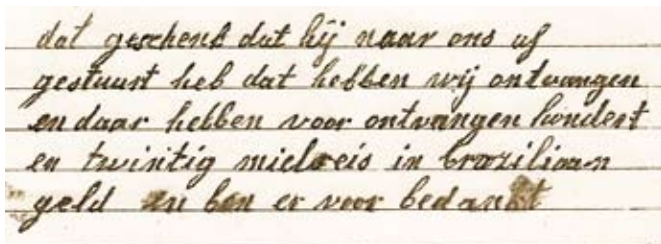 dat geschenk dat hij naar ons af
gestuurt heb dat hebben wij ontvangen
en daar hebben voor ontvangen hondert
en twintig mielreis in braziliaan
geld en ben er voor bedankt